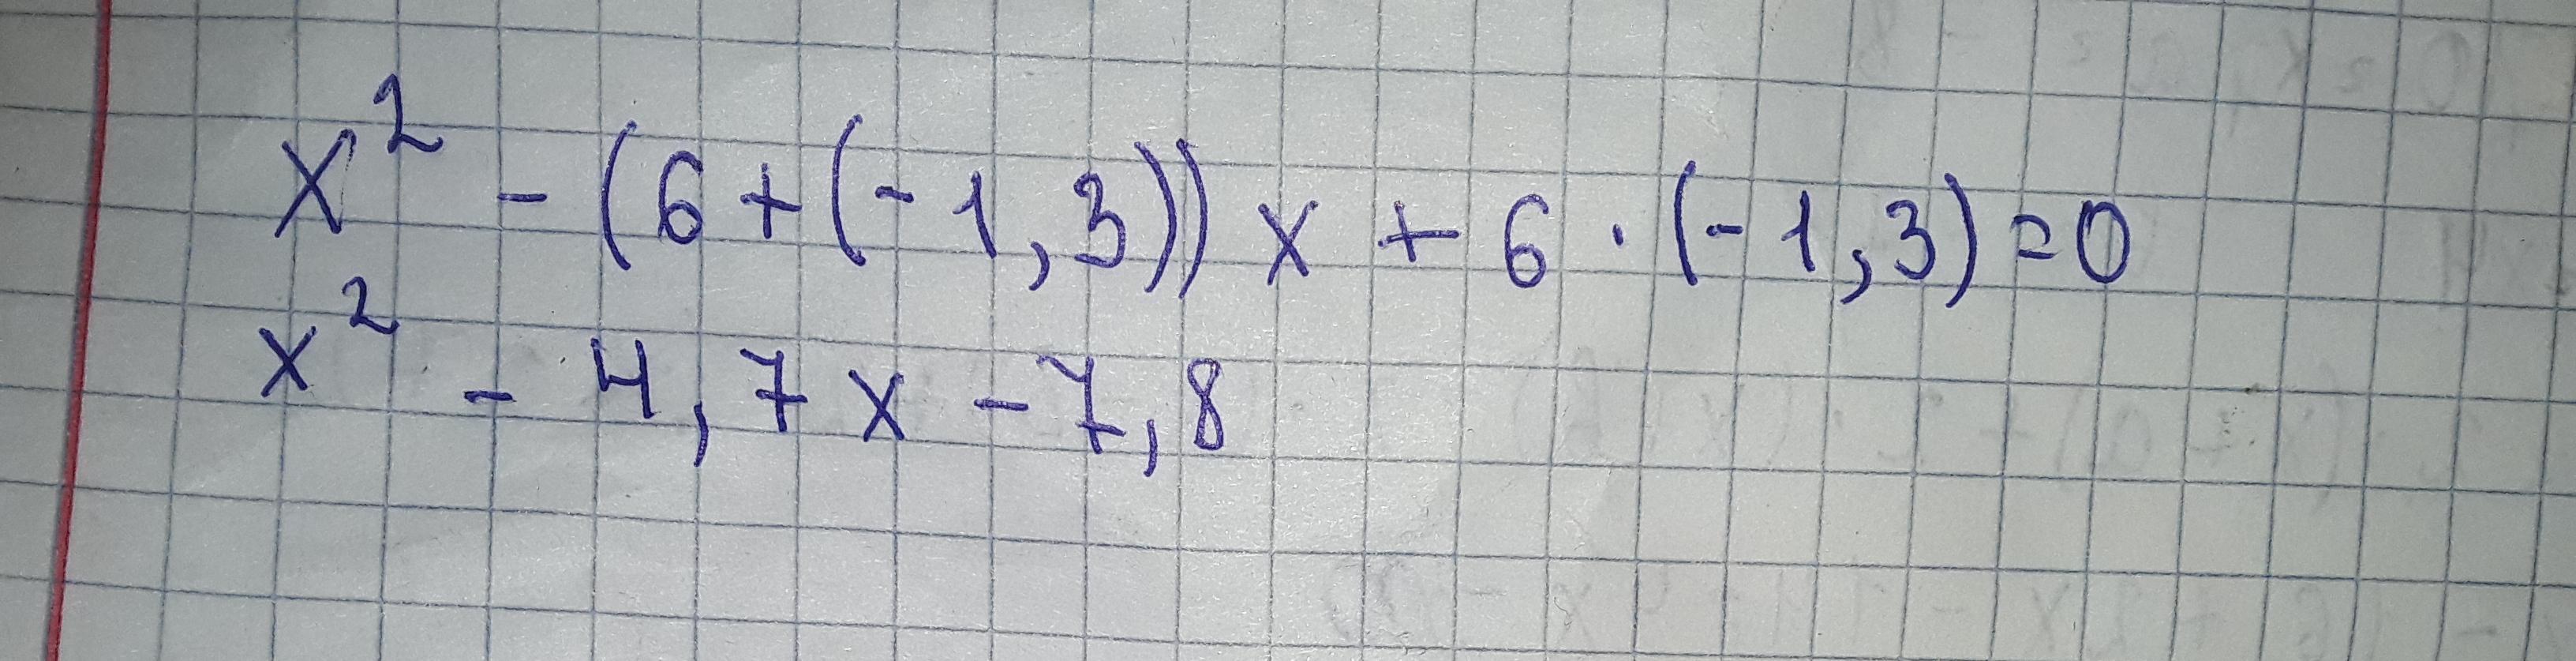 x² - (6 + (-1,3)) x + 6 · (-1,3) = 0
x² - 4,7 x - 7,8